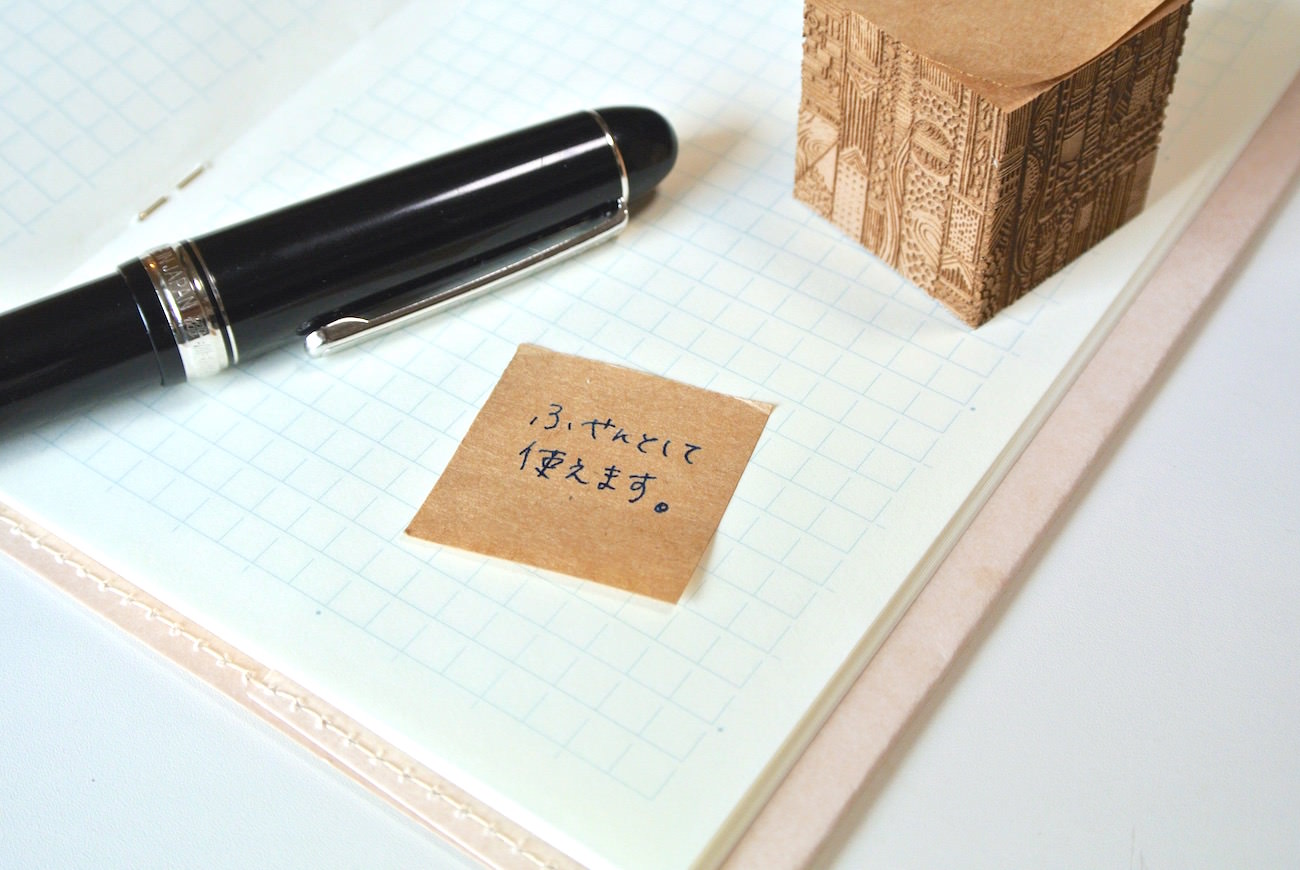 JAPAN
ふせんとして
使えます。